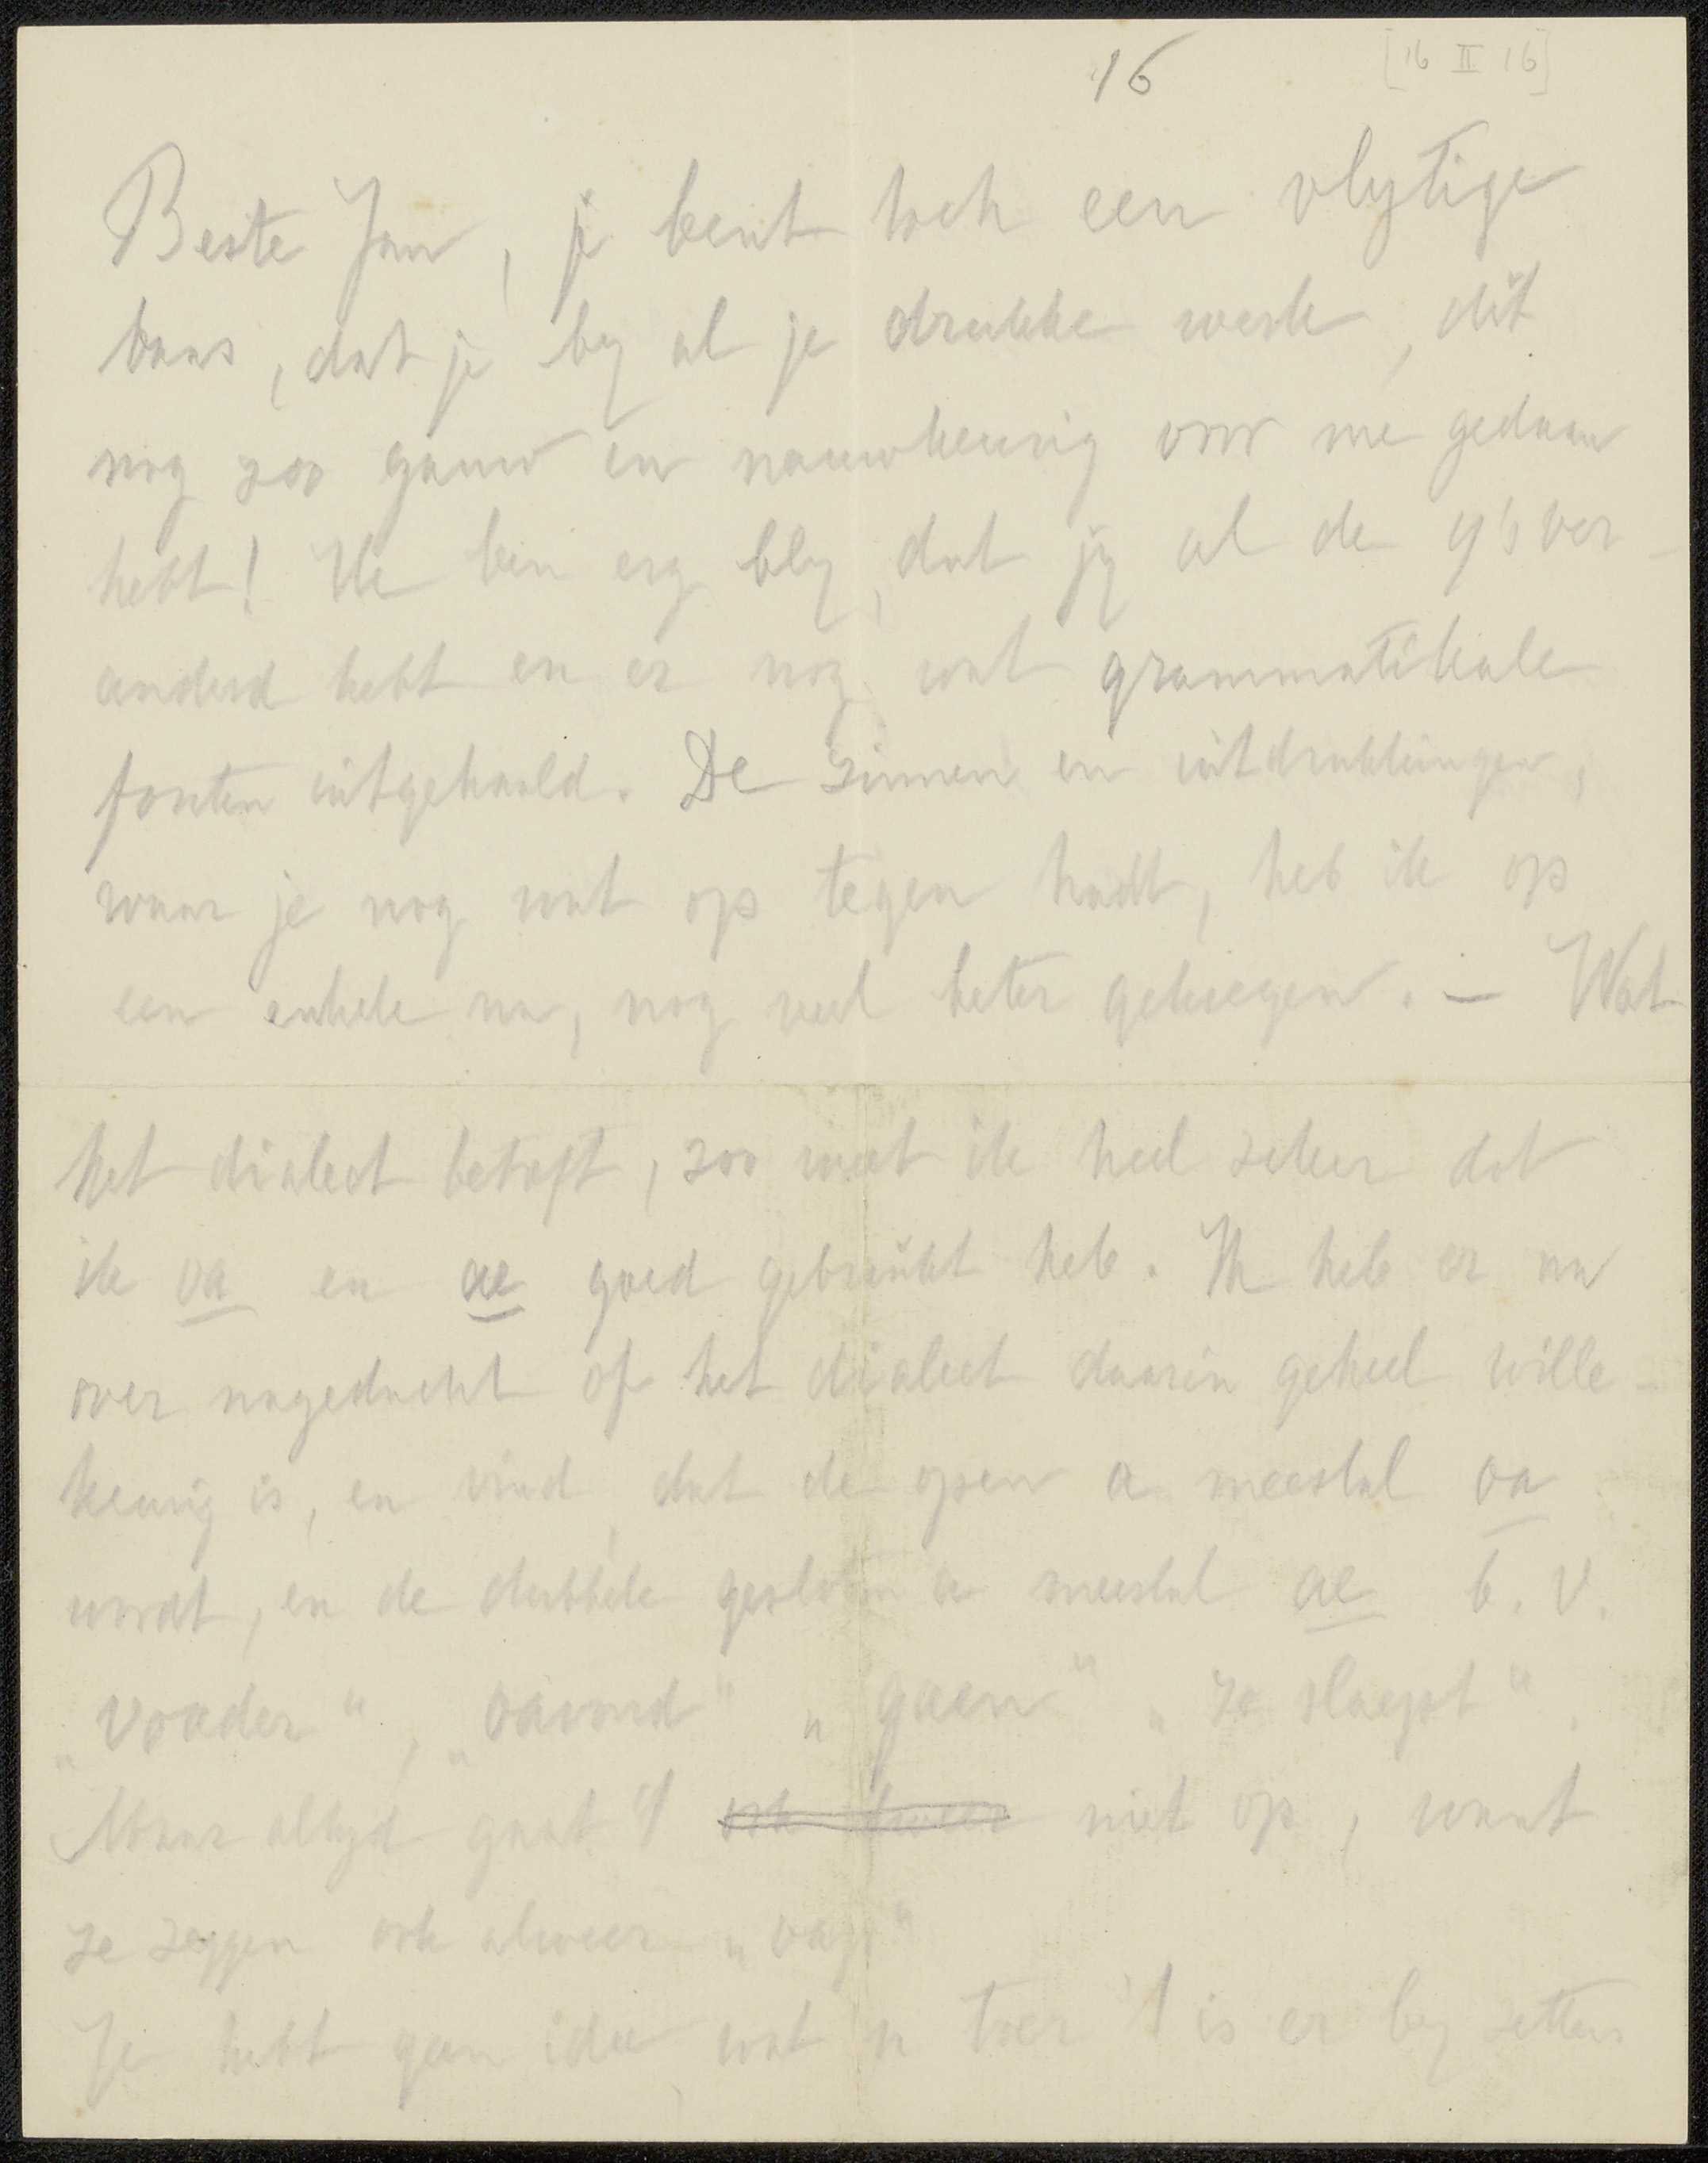 16 [16 II 16]
Beste Jan, je bent toch een vlytige
baas, dat je by al je drukke werk, dit
nog zoo gauw en nauwkeurig voor me gedaan
hebt! Ik ben erg bly, dat jy al de y's ver-
anderd hebt en er nog wat grammatikale
fouten uitgehaald. De zinnen en uitdrukkingen,
waar je nog wat op tegen hadt, heb ik op
een enkele na, nog veel beter gekregen. – Wat
het dialect betreft, zoo weet ik heel zeker dat
ik oa en ae goed gebruikt heb. Ik heb er nu
over nagedacht of het dialect daarin geheel wille-
keurig is, en vind, dat de open a meestal oa
wordt, en de dubbele gesloten a meestal ae b.v.
„Voader", „oavond" „gaen" „ze slaept".
Maar altyd gaat 't ook weer niet op, want
ze zeggen ook alweer „oap"
Je hebt geen idee, wat 'n toer 't is er by zetters